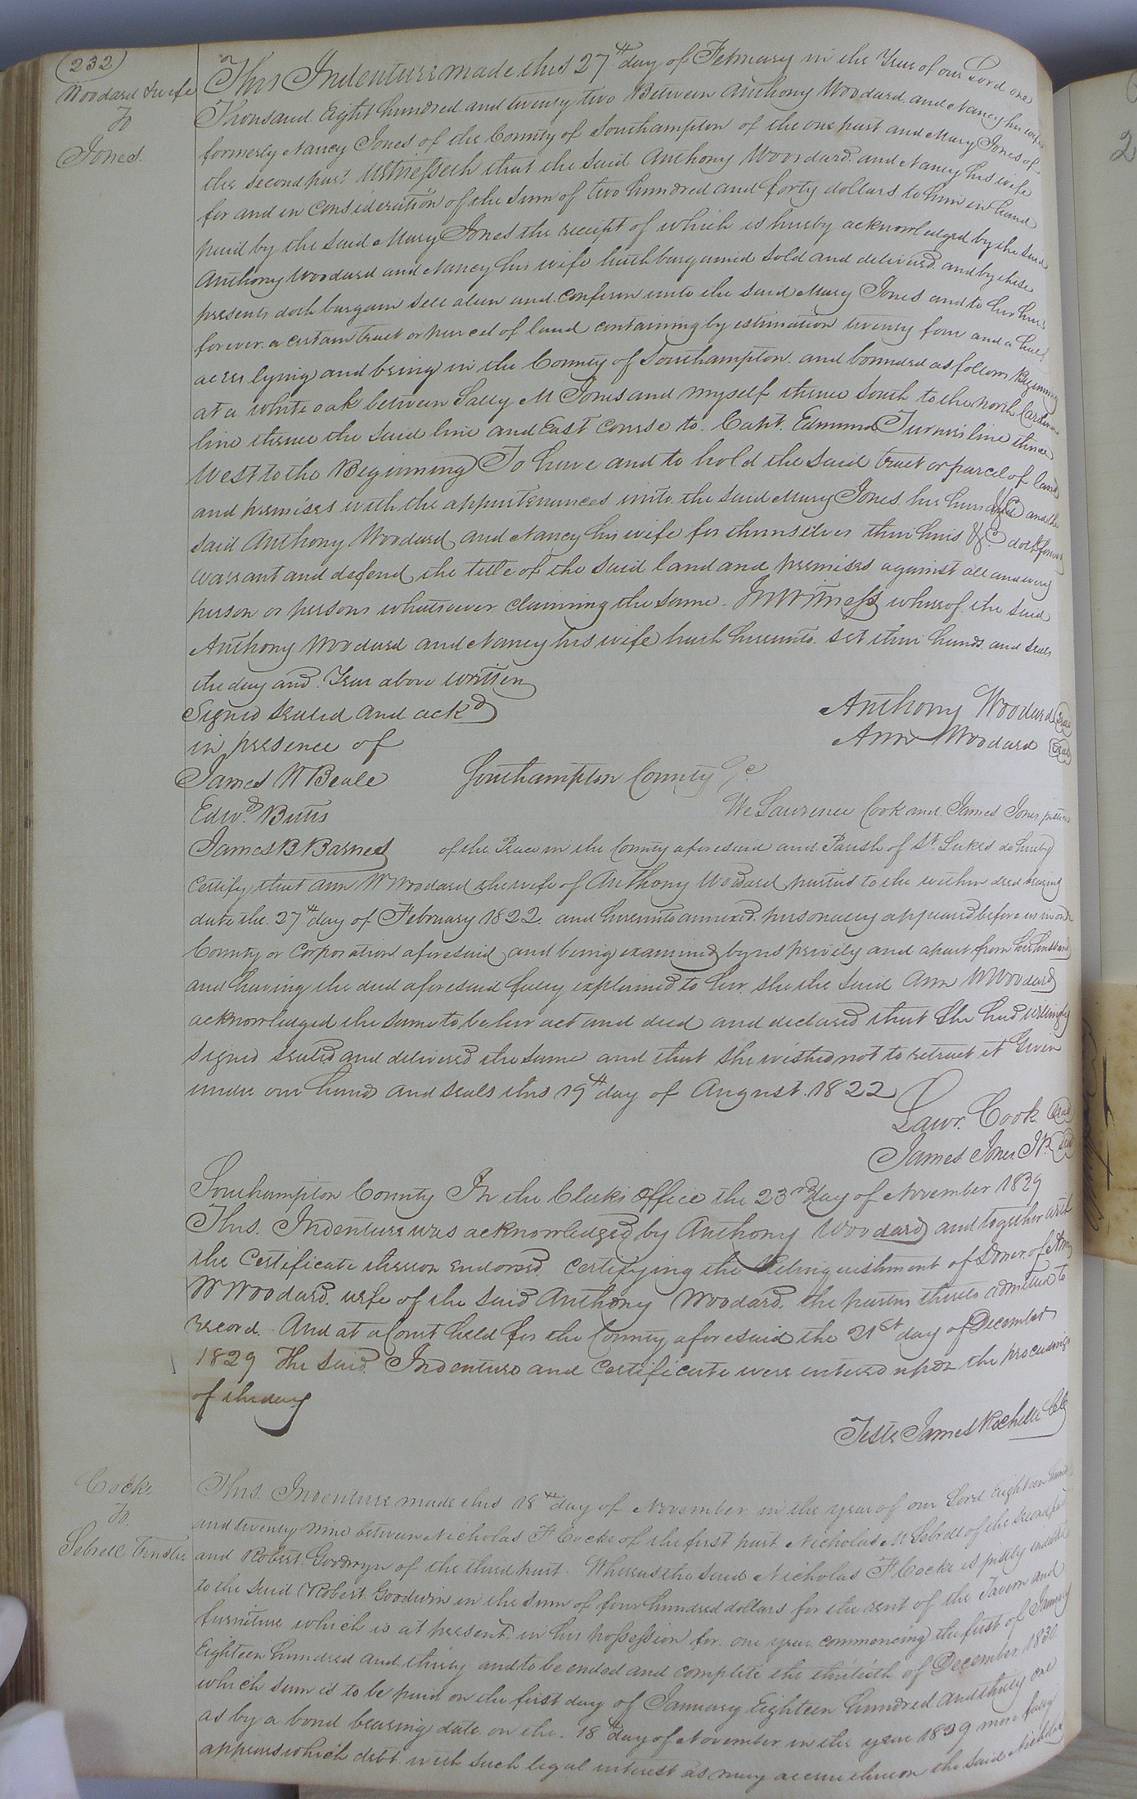 232
Woodard & wife
To
Jones
This Indenture made this 27th day of February in the Year of our Lord one
Thousand Eight hundred and twenty two Between Anthony Woodard and Nancy his wife
formerly Nancy Jones of the County of Southampton of the one part and Mary Jones of
the second part Witnesseth that the said Anthony Woodard and Nancy his wife
for and in consideration of the sum of two hundred and forty dollars to him in hand
paid by the said Mary Jones the receipt of which is hereby acknowledged by the said
Anthony Woodard and Nancy his wife hath bargained sold and delivered and by these
presents doth bargain sell alien and confirm unto the said Mary Jones and to her heirs
forever a certain tract or parcel of land containing by estimation twenty four and a half
acres lying and being in the County of Southampton and bounded as follows Beginning
at a white oak between Sally M Jones and myself thence South to the North Carolina
line thence the said line and East course to Capt. Edmund Turners line thence
West to the Beginning To have and to hold the said tract or parcel of land
and premises with the appurtenances unto the said Mary Jones her heirs &c and the
said Anthony Woodard and Nancy his wife for themselves their heirs &c doth forever
warrant and defend the title of the said land and premises against all and every
person or persons whatsoever claiming the same. In Witness whereof the said
Anthony Woodard and Nancy his wife hath hereunto set their hands and seals
the day and Year above written
Signed sealed and ackd
in presence of
Anthony Woodard Seal
Ann Woodard Seal
James W Beale
Edwd. Butts
James B Barnes
Southampton County Sc
We Lawrence Cook and James Jones justices
of the Peace in the County aforesaid and Parish of St. Lukes do hereby
certify that Ann W Woodard the wife of Anthony Woodard parties to the within deed bearing
date the 27th day of February 1822 and hereunto annexed personally appeared before us in our
County or Corporation aforesaid and being examined by us privily and apart from her husband
and having the deed aforesaid fully explained to her she the said Ann W Woodard
acknowledged the same to be her act and deed and declared that she had willingly
signed sealed and delivered the same and that she wished not to retract it Given
under our hand and seals this 19th day of August 1822
Lawr. Cook Seal
James Jones Seal
Southampton County In the Clerks Office the 23rd day of November 1829
This Indenture was acknowledged by Anthony Woodard and together with
the Certificate thereon endorsed certifying the Relinquishment of Dower of Ann
W Woodard wife of the said Anthony Woodard the parties thereto admitted to
record. And at a Court held for the County aforesaid the 21st day of December
1829 The said Indenture and Certificate were entered upon the proceedings
of the day
Teste James Rochelle Clk
Cocke
To
Sebrell Trustee
This Indenture made this 18th day of November in the year of our Lord Eighteen hundred
and twenty nine between Nicholas F Cocke of the first part Nicholas M Sebrell of the second part
and Robert Goodwyn of the third part. Whereas the said Nicholas F Cocke is justly indebted
to the said Robert Goodwin in the sum of four hundred dollars for the rent of the Tavern and
furniture which is at present in his possession for one year commencing the first of January
Eighteen hundred and thirty and to be ended and complete the thirtieth of December 1830
which sum is to be paid on the first day of January Eighteen hundred and thirty one
as by a bond bearing date on the 18th day of November in the year 1829 more fully
appears which debt with such legal interest as may accrue thereon the said Nicholas